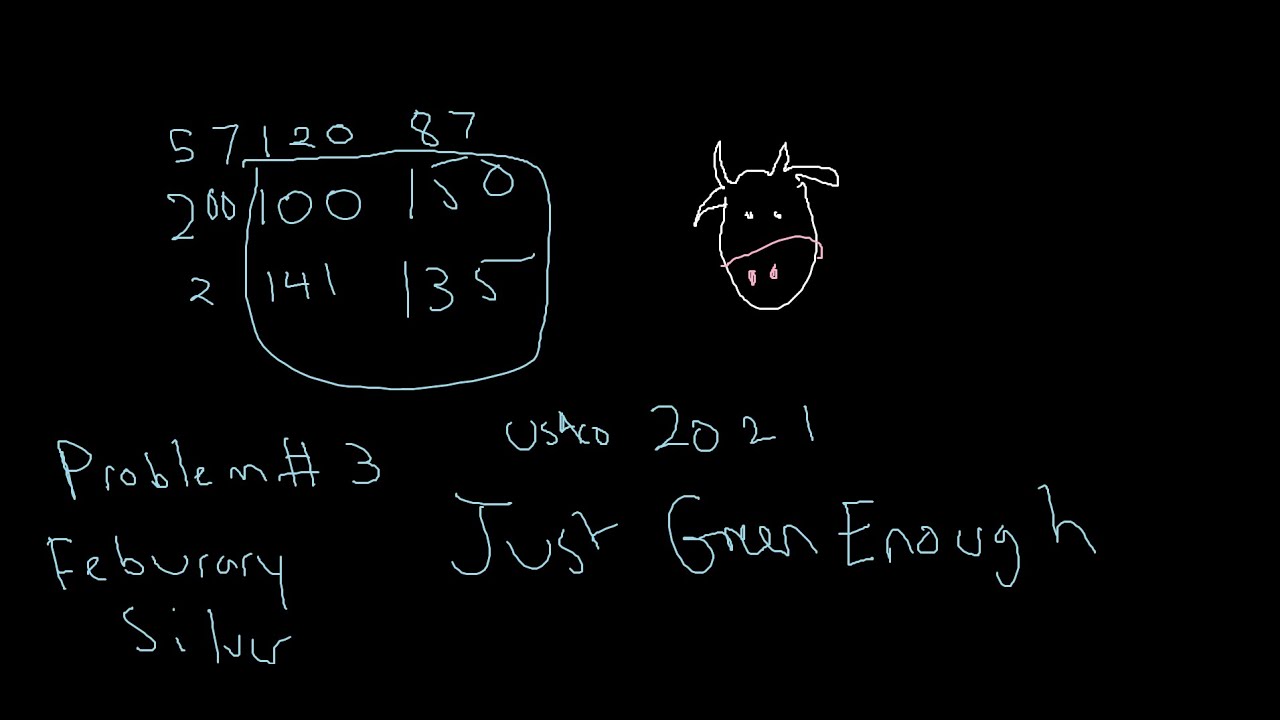 57 120 87
200 100 150
2 141 135
USACO 2021
Problem # 3
Just Green Enough
Feburary
Silver